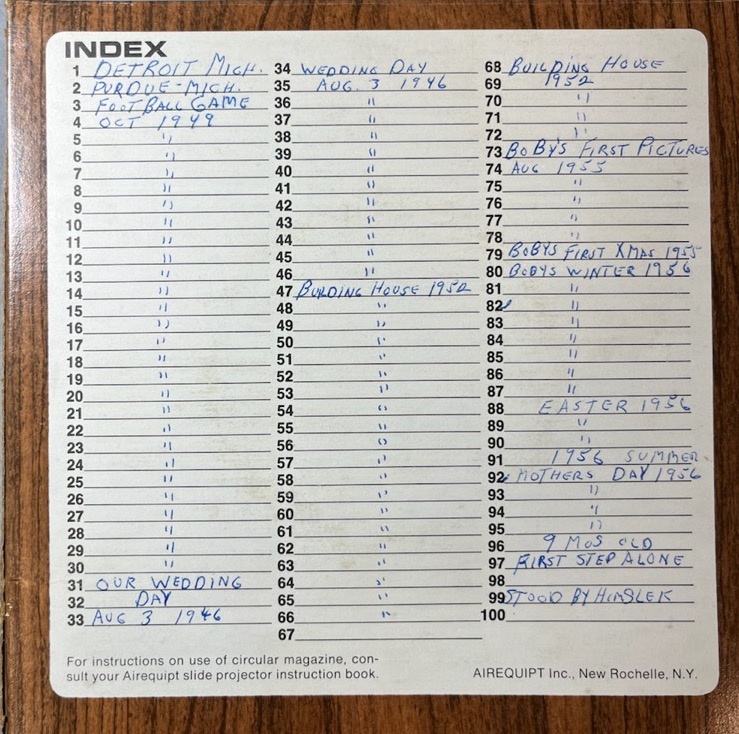 INDEX
1 DETROIT MICH.
2 PURDUE-MICH.
3 FOOTBALL GAME
4 OCT 1949
5 "
6 "
7 "
8 "
9 "
10 "
11 "
12 "
13 "
14 "
15 "
16 "
17 "
18 "
19 "
20 "
21 "
22 "
23 "
24 "
25 "
26 "
27 "
28 "
29 "
30 "
31 OUR WEDDING
32 DAY
33 AUG 3 1946
34 WEDDING DAY
35 AUG. 3 1946
36 "
37 "
38 "
39 "
40 "
41 "
42 "
43 "
44 "
45 "
46 "
47 BURDING HOUSE 1952
48 "
49 "
50 "
51 "
52 "
53 "
54 "
55 "
56 "
57 "
58 "
59 "
60 "
61 "
62 "
63 "
64 "
65 "
66 "
67
68 BUILDING HOUSE
69 1952
70 "
71 "
72 "
73 BOBY'S FIRST PICTURES
74 AUG 1955
75 "
76 "
77 "
78 "
79 BOBYS FIRST XMAS 1955
80 BOBYS WINTER 1956
81 "
82 "
83 "
84 "
85 "
86 "
87 "
88 EASTER 1956
89 "
90 "
91 1956 SUMMER
92 MOTHERS DAY 1956
93 "
94 "
95 "
96 9 MOS OLD
97 FIRST STEP ALONE
98
99 STOOD BY HIMSLEK
100
For instructions on use of circular magazine, con-
sult your Airequipt slide projector instruction book.
AIREQUIPT Inc., New Rochelle, N.Y.